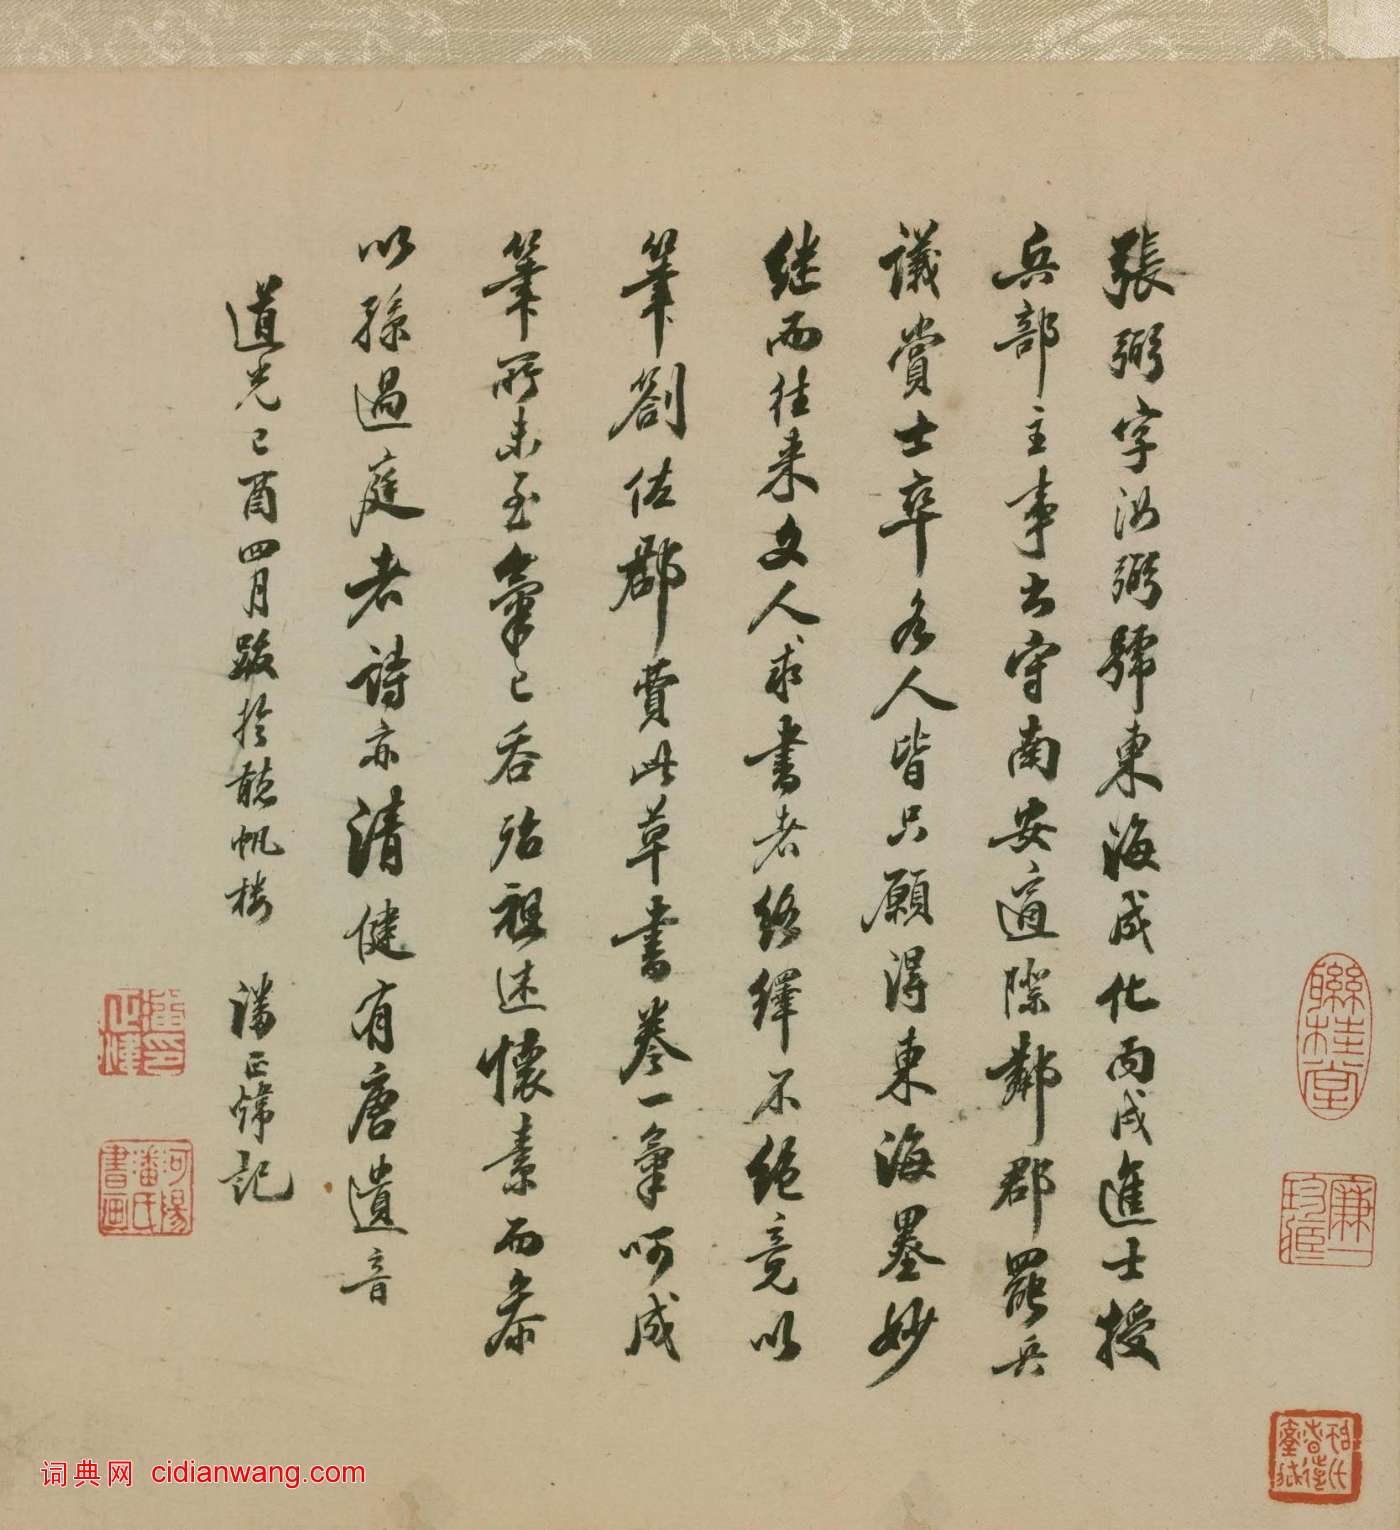 張弼字汝弼號東海成化丙戌進士授
兵部主事出守南安適際鄰郡罷兵
議賞士卒各人皆只願得東海墨妙
继而往来文人求書者络繹不絶竟以
筆劄佐郡費此草書卷一氣呵成
筆所未至氣已吞殆祖述懷素而叅
以孫過庭者詩亦清健有唐遺音
道光己酉四月跋於聽帆楼 潘正煒記
聯桂堂
潘正煒印
河陽潘氏書画
词典网 cidianwang.com